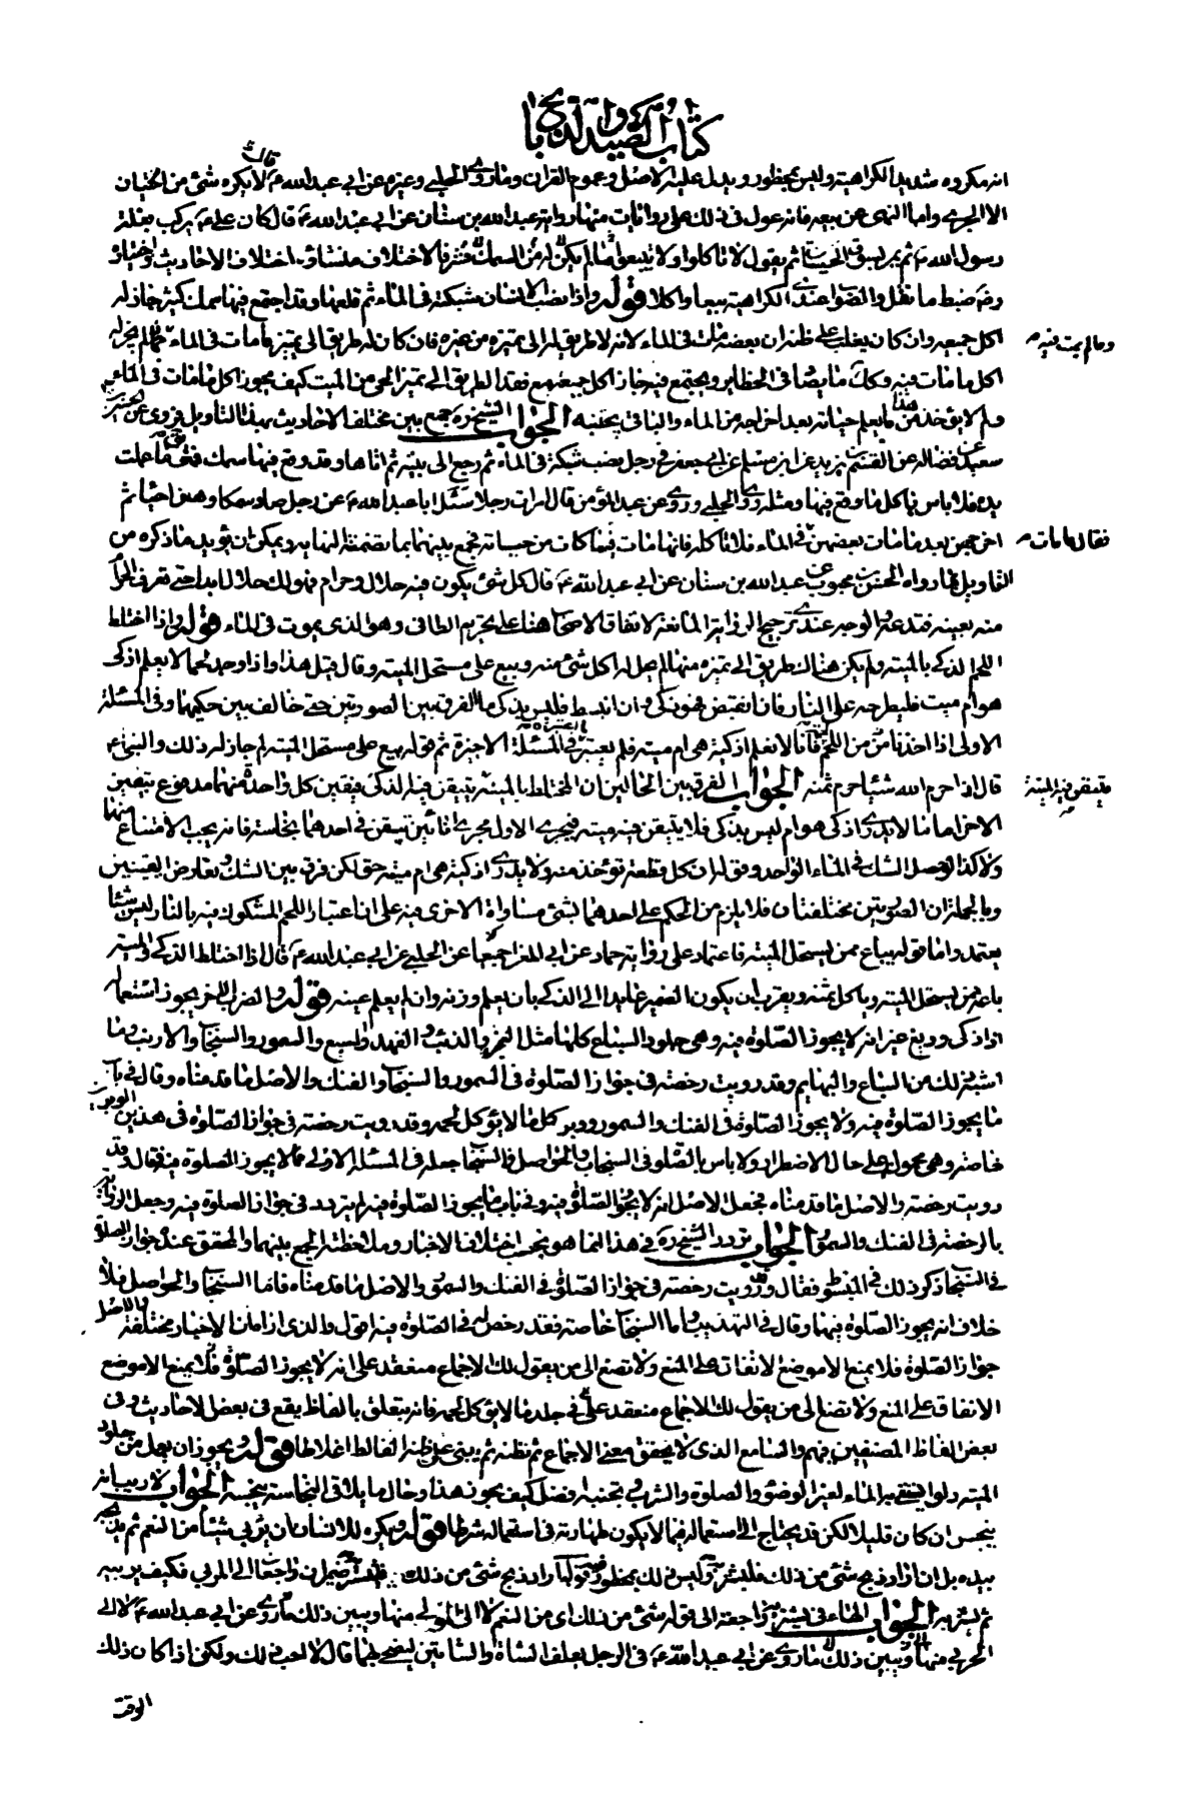 كتاب الصيد والذبايح
انه مكروه شديد الكراهية وليس بمحظور ويدل عليه الاصل وعموم القران وما روى الحلبي وغيره عن ابي عبد الله ع قال لا يكره شئ من الحيتان
الا الجرى واما النهى عن بيعه فانه عول فى ذلك على روايات منها رواية عبد الله بن سنان عن ابي عبد الله ع قال كان على ع يركب بغلة
رسول الله ص ثم يمر بسوق الحيتان ثم يقول لا تاكلوا ولا تبيعوا ما لم يكن له من السمك قشر فالاختلاف منشاؤه اختلاف الاحاديث واختياره
ره ضبط ما نقل والصواب عندى الكراهية بيعا واكلا قوله واذا نصب الانسان شبكة فى الماء ثم قلعها وقد اجتمع فيها سمك كثير جاز له
اكل جميعه وان كان يغلب على ظنه ان بعضه مات فى الماء لانه لا طريق له الى تميزه من غيره فان كان له طريق الى تميز ما مات فى الماء مما لم يمت فيه لم يجز له
اكل ما مات فيه وكذلك ما يصاد فى الحظاير ويجتمع فيه جاز اكل جميعه مع فقد الطريق الى تميز الحى من الميت كيف يجوز اكل ما مات فى الماء
ولم لا يؤخذ من هذا ما يعلم حياته بعد اخراجه من الماء والباقى يجتنبه الجواب الشيخ ره جمع بين مختلف الاحاديث بهذا التاويل فروى عن الحسين بن
سعيد عن فضالة عن القسم بن بريد عن محمد بن مسلم عن ابي جعفر ع فى رجل نصب شبكة فى الماء ثم رجع الى بيته ثم اتاها وقد وقع فيها سمك فقال ما عملت
يده فلا باس باكل ما وقع فيها ومثله روى الحلبي وروى عن عبد المؤمن قال امرت رجلا سئل ابا عبد الله ع عن رجل صاد سمكا وهن احياء ثم
اخرجهن بعد ما مات بعضهن فقال ما مات فى الماء فلا تاكله فانه مات فيما كان من حياته فجمع بينهما بما تضمنه النهاية ويمكن ان يؤيد ما ذكره من
التاويل بما رواه الحسن بن محبوب عن عبد الله بن سنان عن ابي عبد الله ع قال كل شئ يكون فيه حلال وحرام فهو لك حلال ابدا حتى تعرف الحرام
منه بعينه فتدعه والوجه عندى ترجيح الرواية المانعة لاتفاق الاصحاب هنا على تحريم الطافى وهو الذى يموت فى الماء قوله واذا اختلط
اللحم الذكى بالميتة ولم يكن هناك طريق الى تميزه منها لم يحل له اكل شئ منه وبيع على مستحل الميتة وقال قبل هذا واذا وجد لحما لا يعلم اذكى
هو ام ميت فليطرحه على النار فان انقبض فهو ذكى وان انبسط فليس بذكى ما الفرق بين الصورتين حتى خالف بين حكيمهما وفى المسئلة
الاولى اذا اخذنا من اللحم فانا لا نعلم اذكية هى ام ميتة فلم يعتبر فى المسئلة الاخيرة ثم قوله بيع على مستحل الميتة لم جاز له ذلك والنبى ع
قال اذا حرم الله شيئا حرم ثمنه الجواب الفرق بين الحالين ان المختلط بالميتة متيقن فيه الميتة متيقن فيه الذكى فيقين كل واحدة منهما مدفوع بيقين
الاخر اما ما لا يدرى اذكى هو ام ليس بذكى فلا يتيقن فيه ميتة فيجرى الاول مجرى انائين تيقن فى احدهما نجاسة فانه يجب الامتناع منهما
ولا كذا لو حصل الشك فى الماء الواحد وقوله ان كل قطعة تؤخذ منه ولا يدرى اذكية هى ام ميتة حق لكن فرق بين الشك وتعارض اليقينين
وبالجملة ان الصورتين مختلفتان فلا يلزم من الحكم على احدهما بشئ مساواة الاخرى فيه على ان اعتبار اللحم المشكوك فيه بالنار ليس شيئا
يعتمد واما قوله يباع ممن يستحل الميتة فاعتماد على رواية حماد عن ابى المغرا جميعا عن الحلبي عن ابي عبد الله ع قال اذا اختلط الذكى والميتة
باعه ممن يستحل الميتة وياكل ثمنه ويقرب ان يكون الضمير عايدا الى الذكى بان يعلم وزنه وان لم يعلم عينه قوله والضرب الاخر يجوز استعماله
اذا ذكى ودبغ غير انه لا يجوز الصلوة فيه وهى جلود السباع كلها مثل النمر والذئب والفهد والسبع والسمور والسنجاب والارنب وما
اشبه ذلك من السباع والبهايم وقد رويت رخصة فى جواز الصلوة فى السمور والسنجاب والفنك والاصل ما قدمناه وقال فى باب
ما يجوز الصلوة فيه ولا يجوز الصلوة فى الفنك والسمور ووبر كل ما لا يؤكل لحمه وقد رويت رخصة فى جواز الصلوة فى هذين الوبرين
خاصة وهى محمولة على حال الاضطرار ولا باس بالصلوة فى السنجاب والحواصل فالسنجاب جعله فى المسئلة الاولى مما لا يجوز الصلوة فيه فقال وقد
رويت رخصة والاصل ما قدمناه فجعل الاصل انه لا يجوز الصلوة فيه وفى باب ما يجوز الصلوة فيه لم يتردد فى جواز الصلوة فيه وجعل الرواية
بالرخصة فى الفنك والسمور الجواب تردد الشيخ ره فى هذا انما هو بحسب اختلاف الاخبار وملاحظة الجمع بينهما والمحقق عنده جواز الصلوة
فى السنجاب ذكر ذلك فى المبسوط فقال ورويت رخصة فى جواز الصلوة فى الفنك والسمور والاصل ما قدمناه فاما السنجاب والحواصل فلا
خلاف انه يجوز الصلوة فيها وقال فى التهذيب واما السنجاب خاصة فقد رخص له فى الصلوة فيه اقول والذى اراه ان الاخبار مختلفة والاصل
جواز الصلوة فلا يمنع الا موضع الاتفاق على المنع ولا تصغ الى من يقول لك الاجماع منعقد على انه لا يجوز الصلوة فلا يمنع الا موضع
الاتفاق على المنع ولا تصغ الى من يقول لك الاجماع منعقد على فى جلد ما لا يؤكل لحمه فانه يتعلق بالفاظ يقع فى بعض الاحاديث وفى
بعض الفاظ المصنفين فيهم والسامع الذى لا يحقق معنى الاجماع ثم نظنه ثم يبنى على ظنه الغالط اغلاطا قوله ويجوز ان يعمل من جلود
الميتة دلو ليستقى به الماء لغير الوضوء والصلوة والشرب وتجنبه افضل كيف يجوز هذا وحال ما يلاقى النجاسة ينجسه الجواب لا ريب انه
ينجس ان كان قليلا لكن قد يحتاج الى استعماله فيما لا يكون طهارته فى استعماله شرطا قوله ويكره للانسان ان يربى شيئا من النعم ثم يذبحه
بيده بل ان اراد ذبح شئ من ذلك فليشتره وليس ذلك بمحظور قوله اراد ذبح شئ من ذلك فليشتره الضميران راجعان الى المربى فكيف يربيه
ثم يشتريه الجواب الهاء فى ليشتريه راجعة الى قوله شئ من ذلك اى من النعم لا الى منها ويبين ذلك ما روى عن ابي عبد الله ع لا الى
المربى منها ويبين ذلك ما روى عن ابي عبد الله ع فى الرجل يعلف الشاة والشاتين ليضحى بهما قال لا احب ذلك ولكن اذا كان ذلك
الوقت